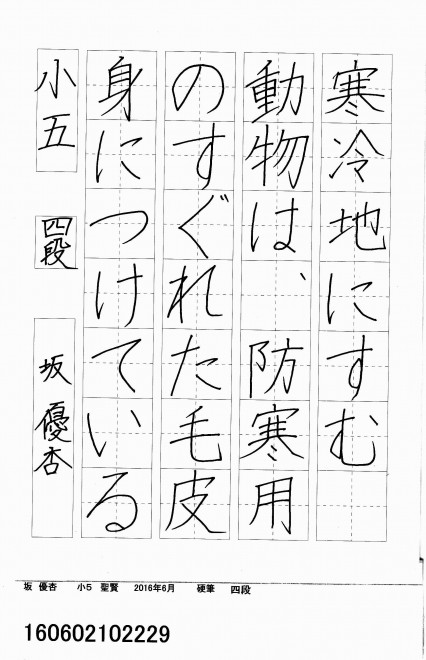 寒冷地にすむ
動物は、防寒用
のすぐれた毛皮
身につけている
小五 四段 坂優杏
坂 優杏 小5 聖賢 2016年6月 硬筆 四段
160602102229